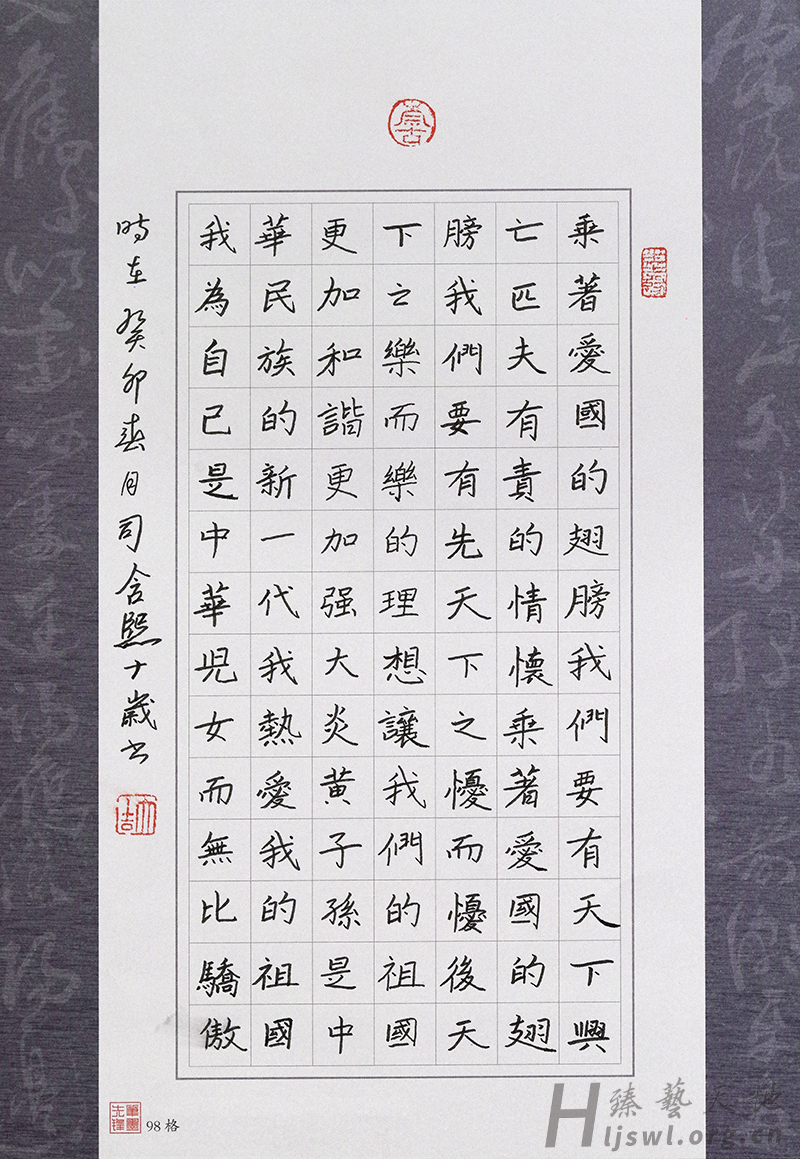 乘著愛國的翅膀我們要有天下興
亡匹夫有責的情懷乘著愛國的翅
膀我們要有先天下之憂而憂後天
下之樂而樂的理想讓我們的祖國
更加和諧更加强大炎黃子孫是中
華民族的新一代我熱愛我的祖國
我為自己是中華兒女而無比驕傲
時在癸卯春月司含熙十歲書
筆墨先鋒
98格
臻藝天地
Hljswl.org.cn